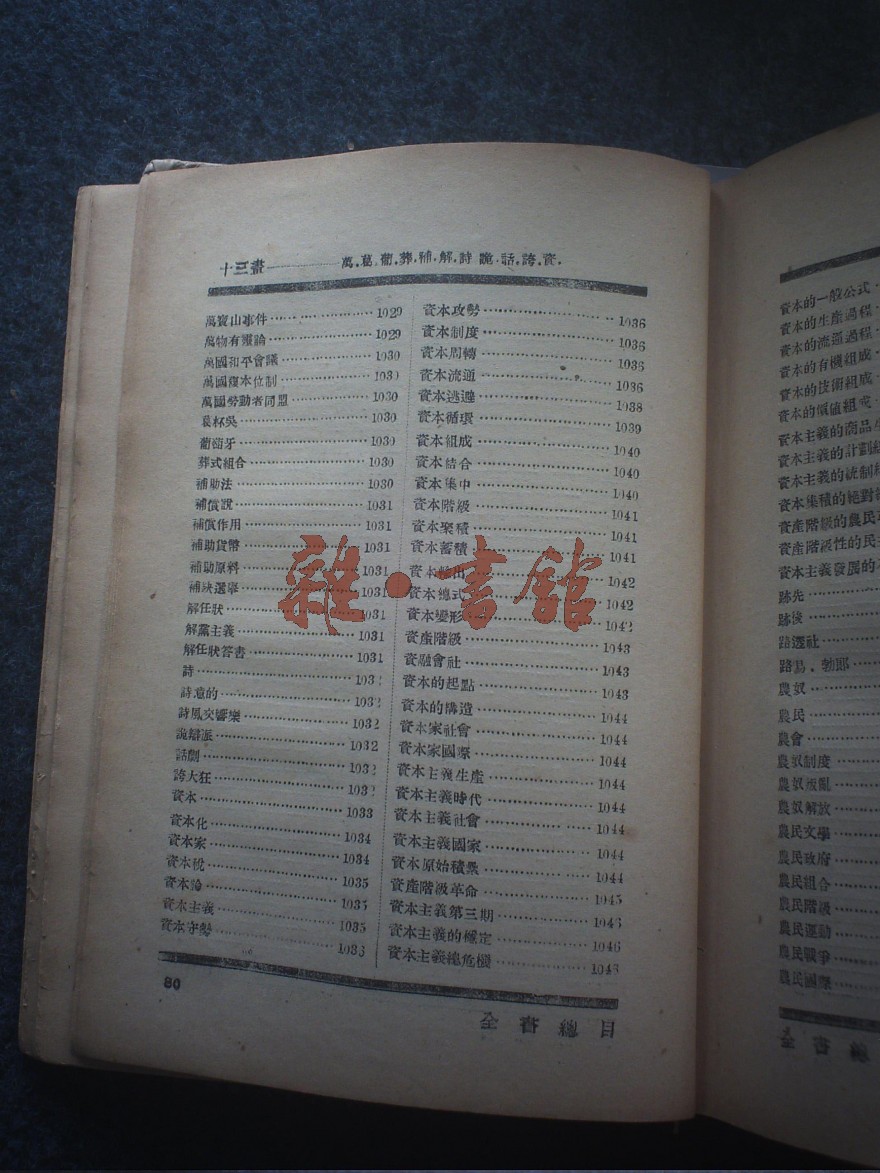 十三畫————萬.葛.葡.葬.補.解.詩.詭.話.誇.資.
萬寶山事件 1029
萬物有靈論 1029
萬國和平會議 1030
萬國複本位制 1030
萬國勞動者同盟 1030
葡萄牙 1030
葬式組合 1030
補助法 1030
補償說 1031
補償作用 1031
補助貨幣 1031
補助原料 1031
補決選舉 1031
解任狀 1031
解黨主義 1031
解任狀答書 1031
詩 1032
詩意的 1032
詩風交響樂 1032
詭辯派 1032
話劇 1032
誇大狂 1032
資本 1033
資本化 1034
資本家 1034
資本稅 1035
資本論 1035
資本主義 1035
資本守勢 1036
資本攻勢 1036
資本制度 1036
資本周轉 1036
資本流通 1036
資本逃避 1038
資本循環 1039
資本組成 1040
資本結合 1040
資本集中 1040
資本階級 1041
資本聚積 1041
資本蓄積 1041
資本輸出 1042
資本總式 1042
資本變形 1042
資產階級 1043
資融會社 1043
資本的起點 1043
資本的構造 1044
資本家社會 1044
資本家國際 1044
資本主義生產 1044
資本主義時代 1044
資本主義社會 1044
資本主義國家 1044
資本原始積累 1044
資產階級革命 1045
資本主義第三期
資本主義的穩定 1046
資本主義總危機
80
全書總目
雜·書館
資本的一般公式
資本的生產過程
資本的流通過程
資本的有機組成
資本的技術組成
資本的價值組成
資本主義的商品
資本主義的計劃
資本主義的統制
資本集積的絕對
資產階級的農民
資產階級性的民
資本主義發展的
跡先
跡後
路透社
路易．勃郎
農奴
農民
農會
農奴制度
農奴叛亂
農奴解放
農民文學
農民政府
農民組合
農民階級
農民運動
農民戰爭
農民國際
全書總